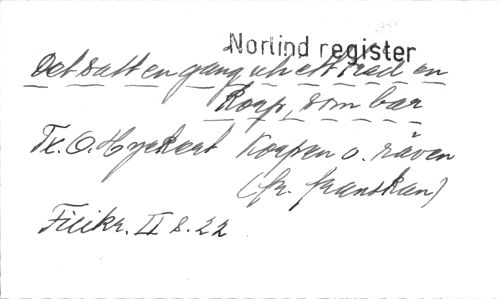 Norlind register
Det satt en gång uti ett träd en
Korp, som bar
Tx. O. Hyckert Korpen o. räven
(fr. franskan)
Filikr. II s. 22